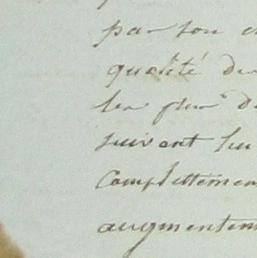 par son
qualité de
les plus de
suivant lu
Complettemen
augmentem